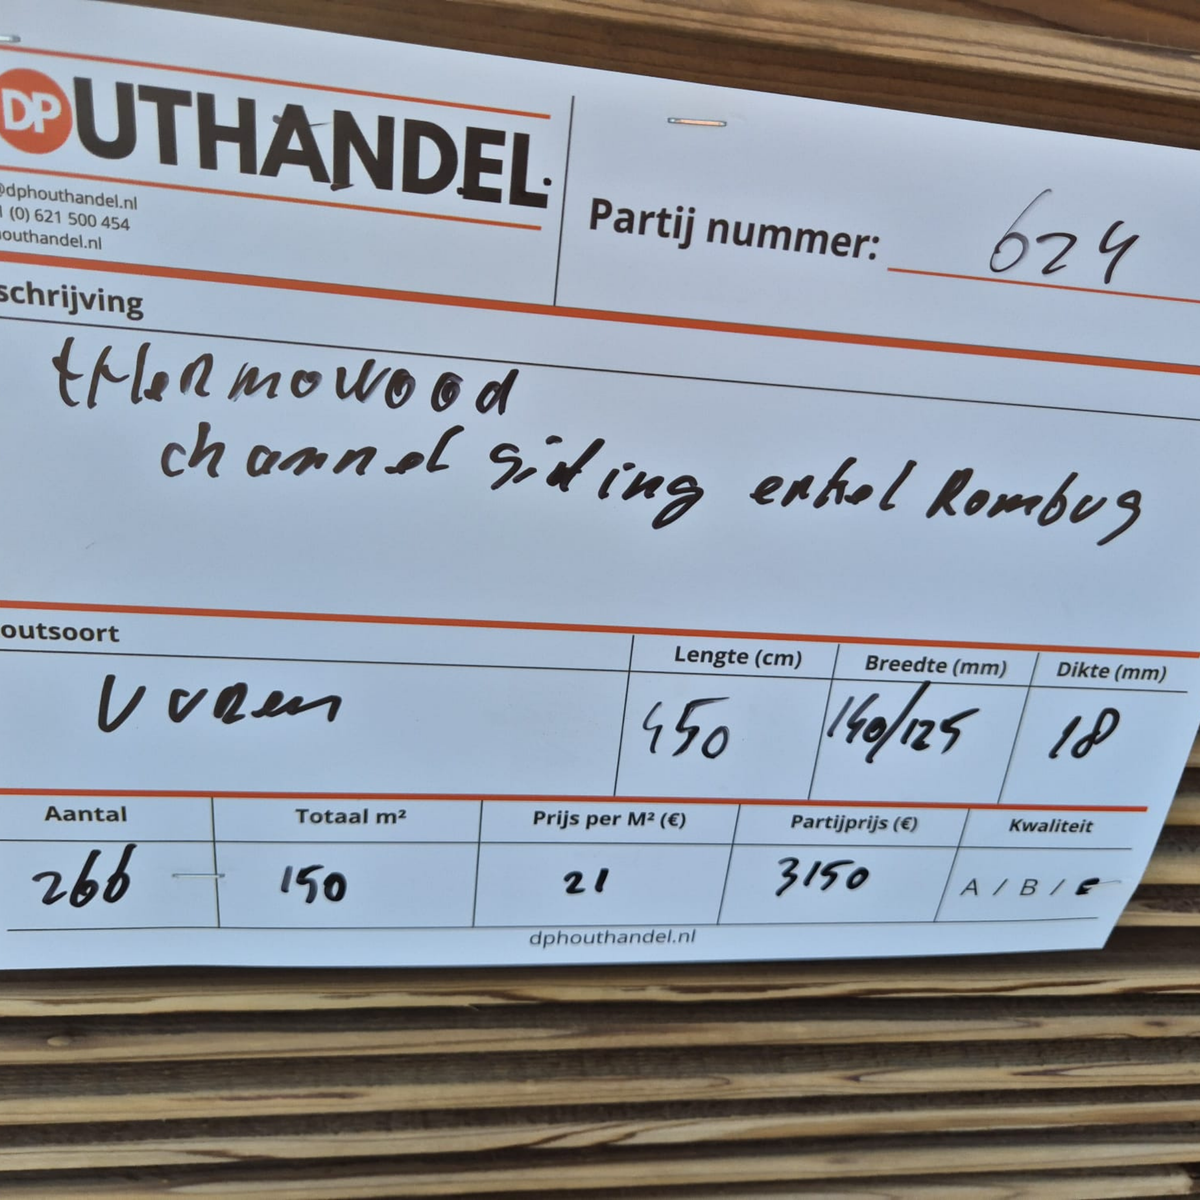 DP
OUTHANDEL.
@dphouthandel.nl
1 (0) 621 500 454
outhandel.nl
Partij nummer: 624
schrijving
tHermowood
channel siding enkel Rombus
outsoort
Lengte (cm) Breedte (mm) Dikte (mm)
Vuren 450 140/125 18
Aantal Totaal m² Prijs per M² (€) Partijprijs (€) Kwaliteit
266 150 21 3150 A / B / C
dphouthandel.nl